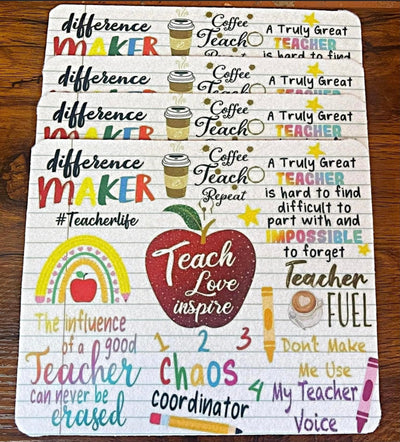 difference
MAKER
Coffee
Teach
Repeat
A Truly Great
TEACHER
is hard to find
difference
MAKER
Coffee
Teach
A Truly Great
TEACHER
difference
MAKER
Coffee
Teach
A Truly Great
TEACHER
difference
MAKER
#Teacherlife
Coffee
Teach
Repeat
A Truly Great
TEACHER
is hard to find
difficult to
part with and
IMPOSSIBLE
to forget
Teach
Love
inspire
Teacher
FUEL
The influence
of a good
Teacher
can never be
erased
1 2 3 4
Chaos
coordinator
Don't Make
Me Use
My Teacher
Voice